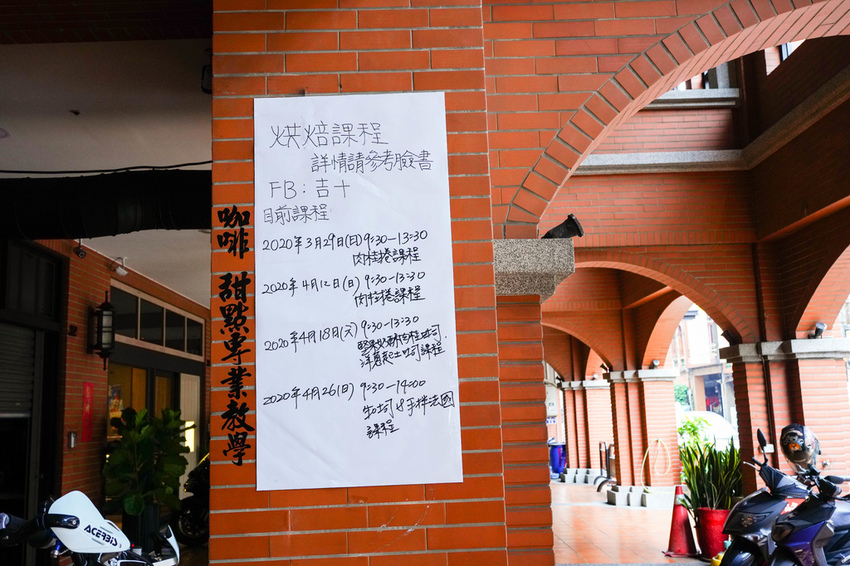 烘焙課程
詳情請參考臉書
FB：吉十
目前課程
2020年3月29日(日)9:30-13:30
肉桂捲課程
2020年4月12日(日)9:30-13:30
肉桂捲課程
2020年4月18日(六)9:30-13:30
吐司
洋蔥起士吐司課程
2020年4月26(日)9:30-14:00
生吐司&手拌法國
課程
咖啡 甜點專業教學
ACERBIS